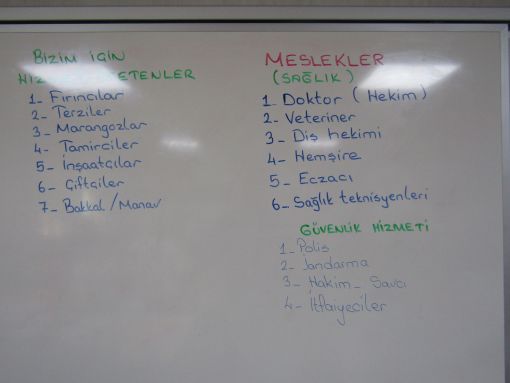 BİZİM İÇİN
HİZ ETENLER
1- Fırıncılar
2- Terziler
3- Marangozlar
4- Tamirciler
5- İnşaatçılar
6- Çiftçiler
7- Bakkal / Manav
MESLEKLER
(SAĞLIK)
1- Doktor ( Hekim )
2- Veteriner
3- Diş hekimi
4- Hemşire
5- Eczacı
6- Sağlık teknisyenleri
GÜVENLİK HİZMETİ
1- Polis
2- Jandarma
3- Hakim - Savcı
4- İtfaiyeciler